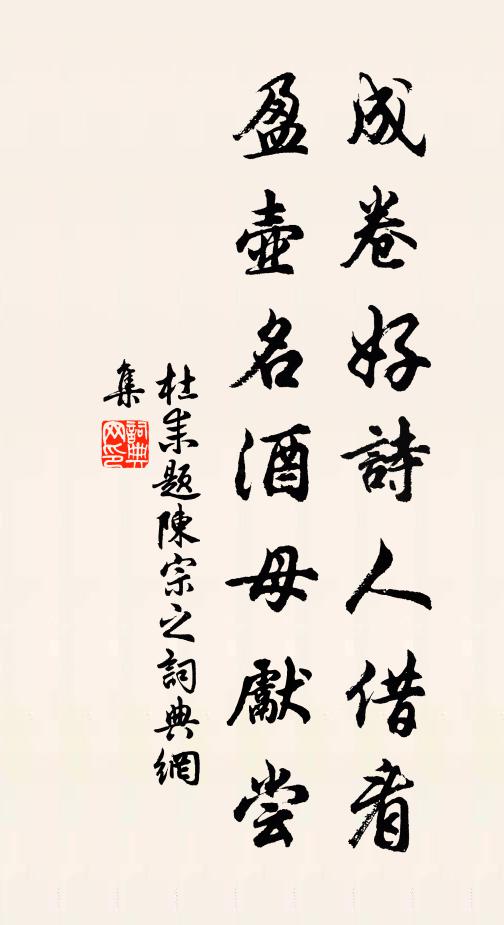 成卷好詩人借看
盈壺名酒母獻尝
杜耒題陳宗之詞典網
集
詞典
网印